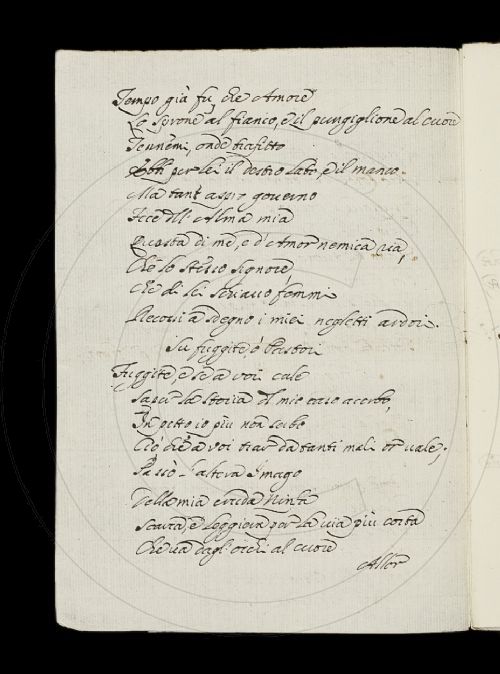 Tempo già fu, che Amore
Lo sprone al fianco, e il pungiglione al cuore
Tennemi, onde trafitto
Ebbi per lei il destro lato, e il manco.
Ma tant' aspro governo
Fece dell' Alma mia
Questa di me, e d'Amor nemica ria,
Che lo stesso Signore,
Che di lei schiavo femmi
Recossi a sdegno i miei negletti ardori.
Su fuggite o Pastori
Fuggite, e se a voi cale
Saper la storia del mio caso acerbo,
In petto io più non serbo
Ciò che a voi trar da tanti mali or vale;
Passò l'altera Imago
Della mia cruda Ninfa
Scarca, e leggiera per la via più corta
Che va dagl' occhi al cuore
Allor